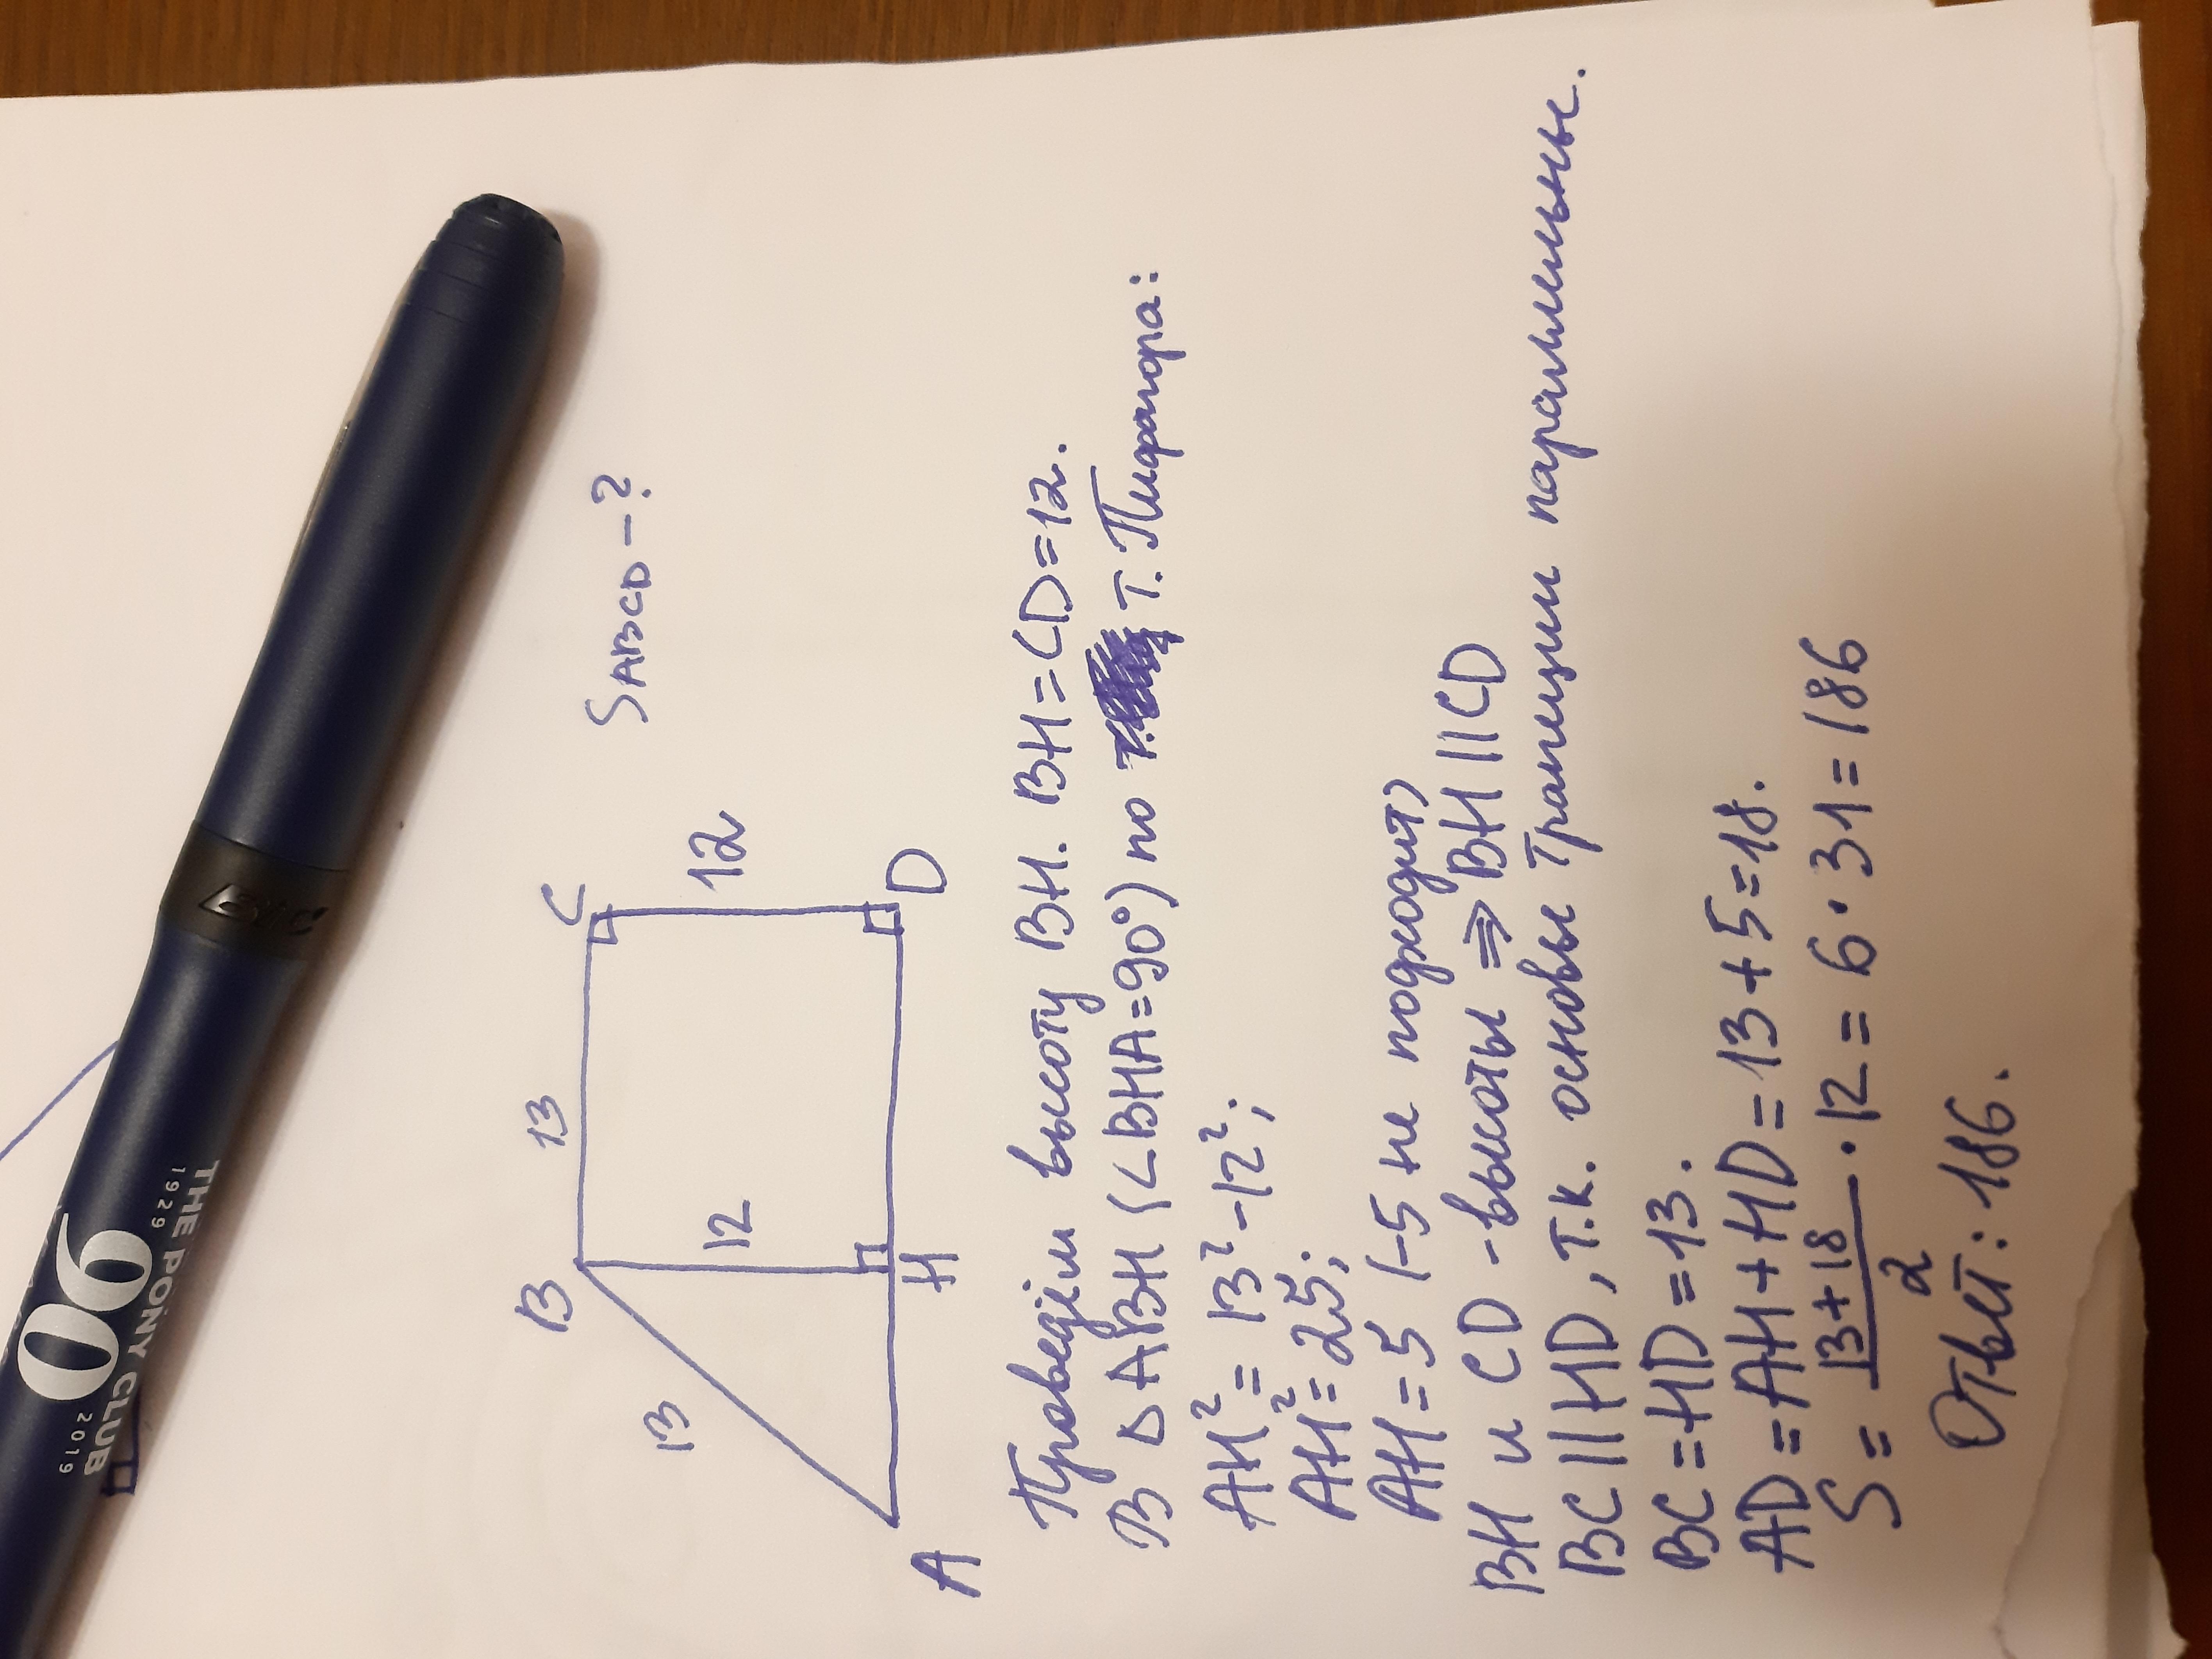 90
THE PONY CLUB
1929 2019
S ABCD - ?
B 13 C
13 12 12
A H D
Проведём высоту BH. BH=CD=12.
В △ABH (∠BHA=90°) по т. Т. Пифагора:
AH²=13²-12²;
AH²=25;
AH=5 (-5 не подходит)
BH и CD - высоты ⇒ BH||CD
BC||HD, т.к. основы трапеции параллельны.
BC=HD=13.
AD=AH+HD=13+5=18.
S= 13+18/2 · 12=6·31=186
Ответ: 186.